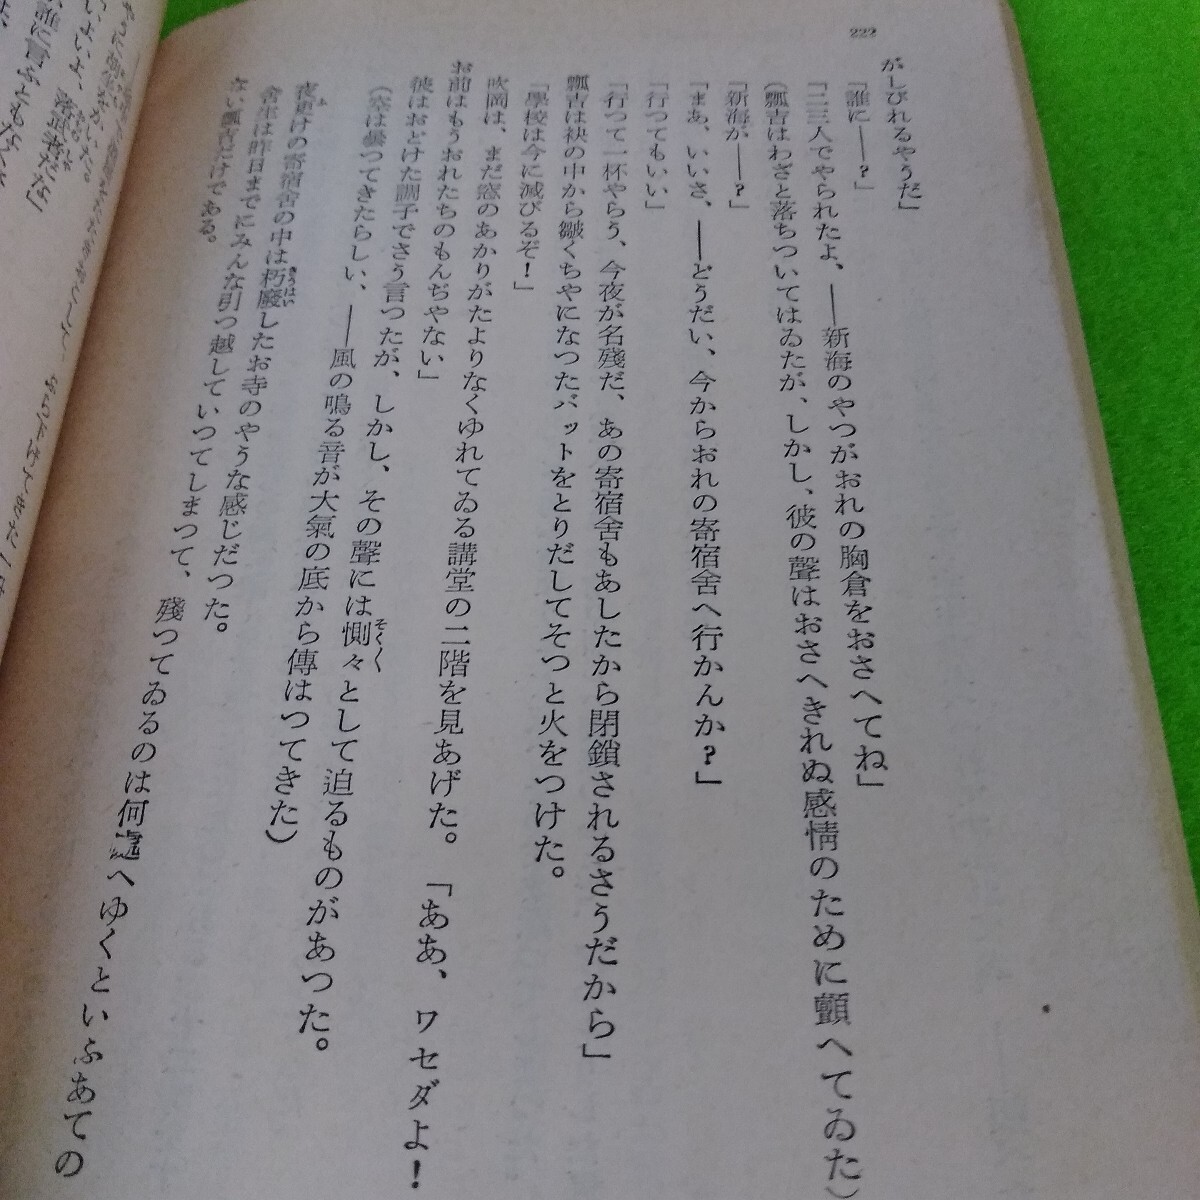 222
がしびれるやうだ」
「誰に――?」
「二三人でやられたよ、――新海のやつがおれの胸倉をおさへてね」
(瓢吉はわざと落ちついてはゐたが、しかし、彼の聲はおさへきれぬ感情のために顫へてゐた)
「新海が――?」
「まあ、いいさ、――どうだい、今からおれの寄宿舍へ行かんか?」
「行つてもいい」
「行つて一杯やらう、今夜が名殘だ、あの寄宿舍もあしたから閉鎖されるさうだから」
瓢吉は袂の中から皺くちやになつたバットをとりだしてそつと火をつけた。
「學校は今に滅びるぞ!」
吹岡は、まだ窓のあかりがたよりなくゆれてゐる講堂の二階を見あげた。「ああ、ワセダよ!
お前はもうおれたちのもんぢやない」
彼はおどけた調子でさう言つたが、しかし、その聲には惻々として迫るものがあつた。
そく〱
(空は曇つてきたらしい、――風の鳴る音が大氣の底から傳はつてきた)
夜更けの寄宿舍の中は朽廢したお寺のやうな感じだつた。
ふ
きうはい
舍生は昨日までにみんな引つ越していつてしまつて、殘つてゐるのは何處へゆくといふあての
ない瓢吉だけである。
いよいよ、落武者だな」